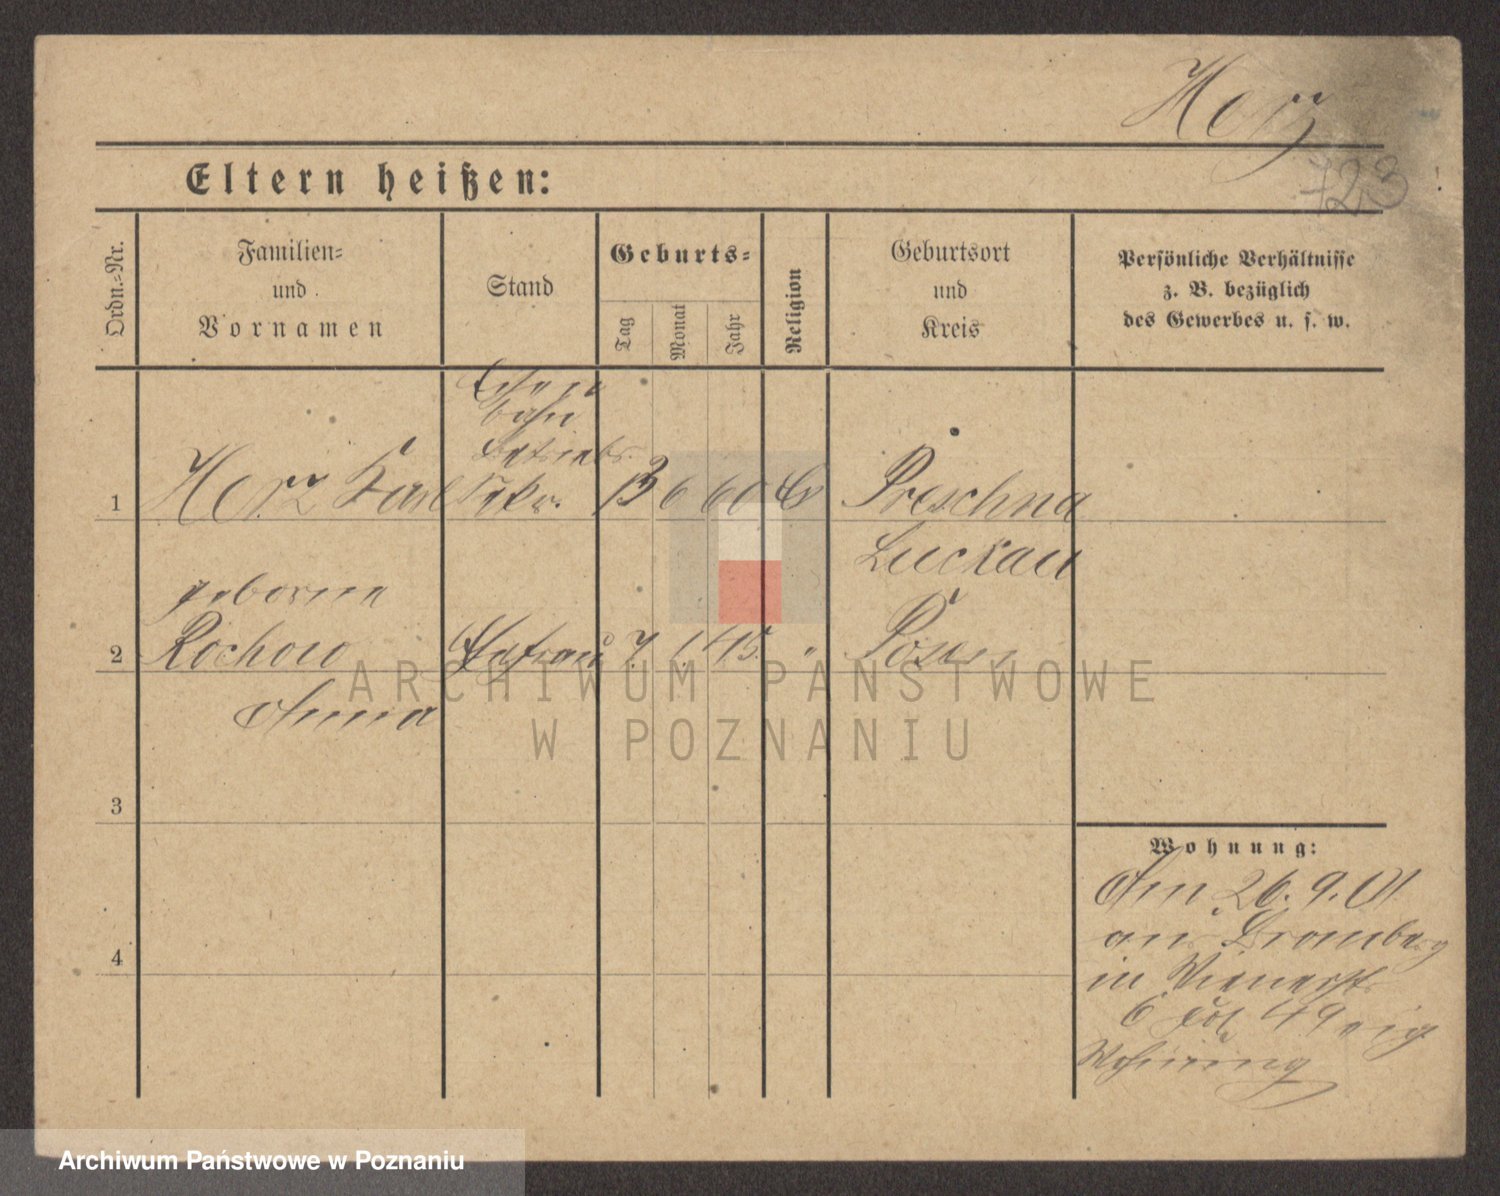 Herz
723
Eltern heißen:
Ordn.-Nr.
Familien-
und
Vornamen
Stand
Geburts-
Tag
Monat
Jahr
Religion
Geburtsort
und
Kreis
Persönliche Verhältnisse
z. B. bezüglich
des Gewerbes u. s. w.
Eisen
bahn
Betriebs
1 Herz Karl Sekr. 13 6 60 Ev Preschna
Luckau
geborene
2 Rochow Ehefrau 7. 1. " Posen
Anna
3
4
Wohnung:
Am 26. 9. 01
an Bromberg
in Wienerstr
6 49 eig
Wohnung
ARCHIWUM PAŃSTWOWE
W POZNANIU
Archiwum Państwowe w Poznaniu